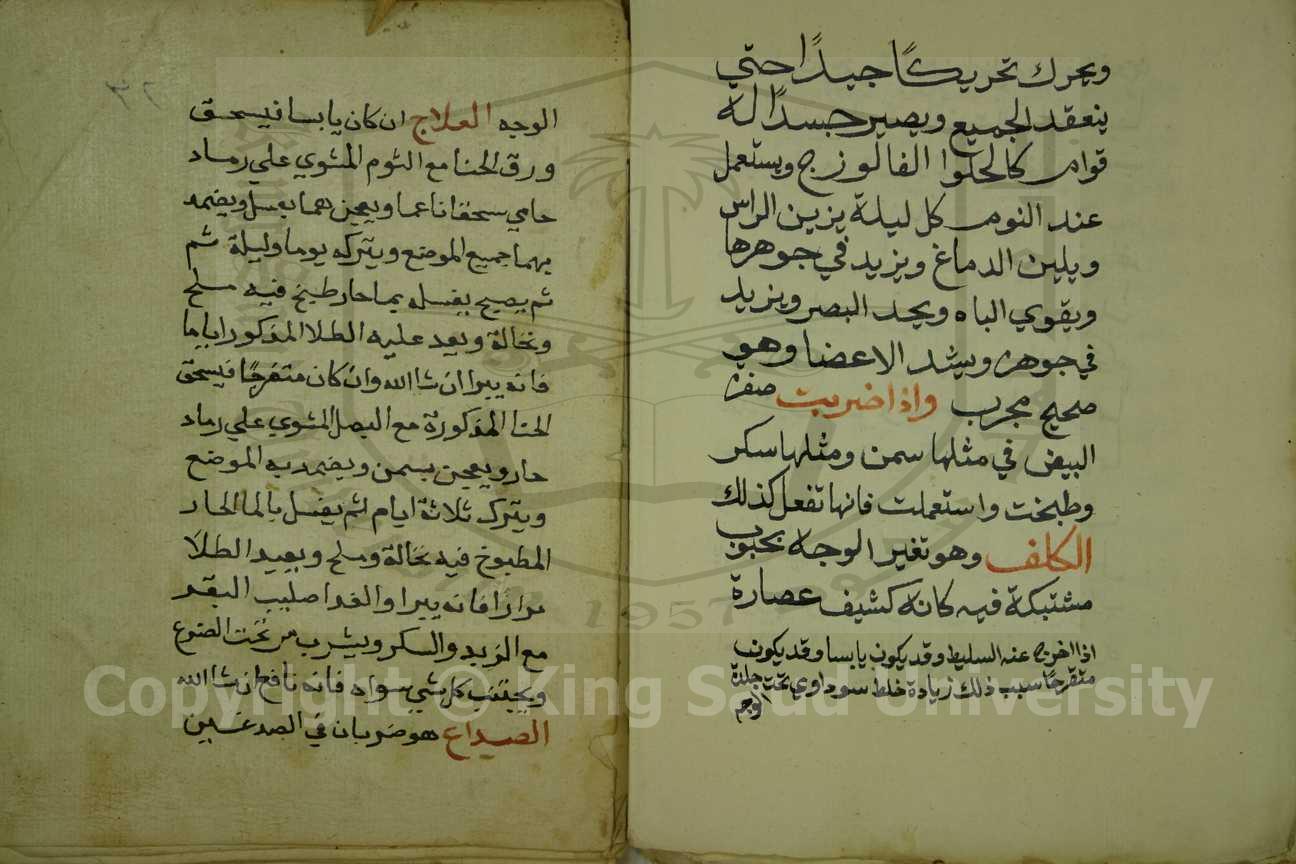 ويحرك تحريكًا جيدًا حتي
ينعقد الجميع ويصير جسدًا له
قوام كالحلوا الفالوزج ويستعمل
عند النوم كل ليلة يزين الراس
ويلين الدماغ ويزيد في جوهرها
ويقوي الباه ويحد البصر ويزيد
في جوهره ويشد الاعضا وهو
صحيح مجرب واذا ضربت صفرة
البيض في مثلها سمن ومثلها سكر
وطبخت واستعملت فانها تفعل كذلك
الكلف وهو تغير الوجه بحبوب
مشتبكة فيه كانه كشيف عصارة
اذا اخرج عنه السليط وقد يكون يابسا وقد يكون
متقرحًا سبب ذلك زيادة خلط سوداوي تحت جلدة
الوجه
٣٢
الوجه العلاج ان كان يابسا فيسحق
ورق الحنا مع الثوم المشوي علي رماد
حامي سحقا ناعما ويعجن هما بعسل ويضمد
بهما جميع الموضع ويتركه يوما وليلة ثم
ثم يصبح يغسله بما حار طبخ فيه ملح
ونخالة ويعد عليه الطلا المذكور اياما
فانه يبرا ان شا الله وان كان متقرحًا فيسحق
الحنا المذكورة مع البصل المشوي علي رماد
حار ويعجن بسمن ويضمد به الموضع
ويترك ثلاثة ايام ثم يغسل بالما الحار
المطبوخ فيه نخالة وملح ويعيد الطلا
مرارًا فانه يبرا والغدا صليب البقر
مع الزبد والسكر ويشرب من تحت الضنوع
ويجتنب كل شي سواه فانه نافع ان شا الله
الصداع هو ضربان في الصدغين
Copyright © King Saud University
1957